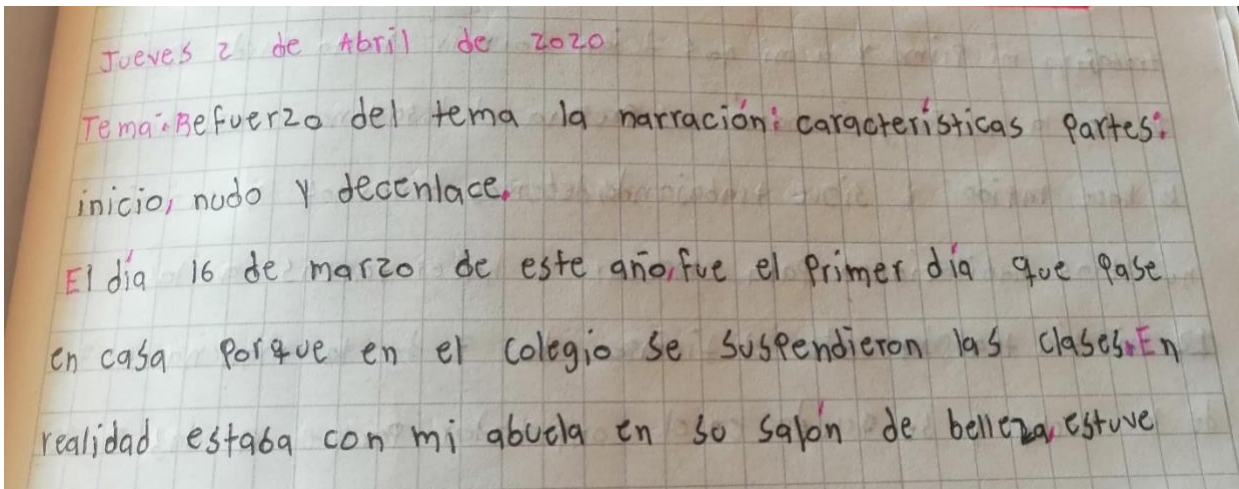 Jueves 2 de Abril de 2020
Tema: Refuerzo del tema la narración: características Partes:
inicio, nudo y decenlace.
El día 16 de marzo de este año, fue el Primer día que Pase
en casa Porque en el colegio se suspendieron las clases. En
realidad estaba con mi abuela en su salón de belleza, estuve